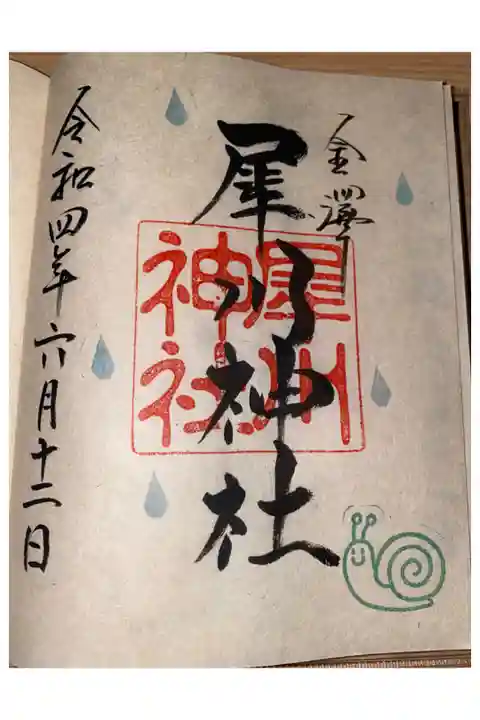 金澤
犀川神社
犀川
神社
令和四年六月十二日